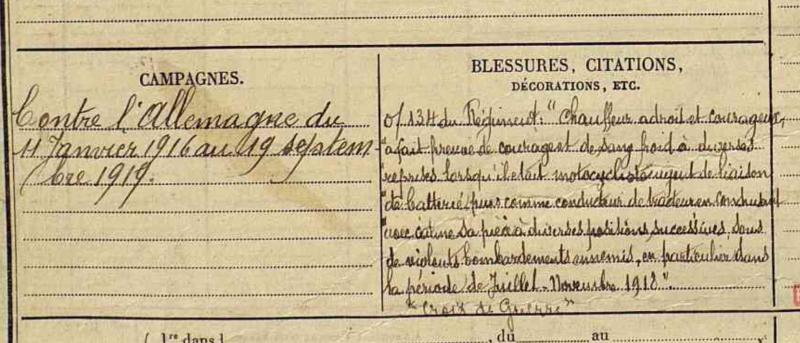 CAMPAGNES.
Contre l'Allemagne du
11 Janvier 1916 au 19 septem-
bre 1919.
BLESSURES, CITATIONS,
DÉCORATIONS, ETC.
of 134 du Régiment: "Chauffeur adroit et courageux,
"a fait preuve de courage et de sang froid à diverses
reprises lorsqu'il était motocycliste agent de liaison
"de batterie, puis comme conducteur de tracteur en conduisant
"avec calme sa pièce à diverses positions successives, sous
de violents bombardements ennemis, en particulier dans
la période de Juillet-Novembre 1918".
"Croix de Guerre"
(1re dans) , du au